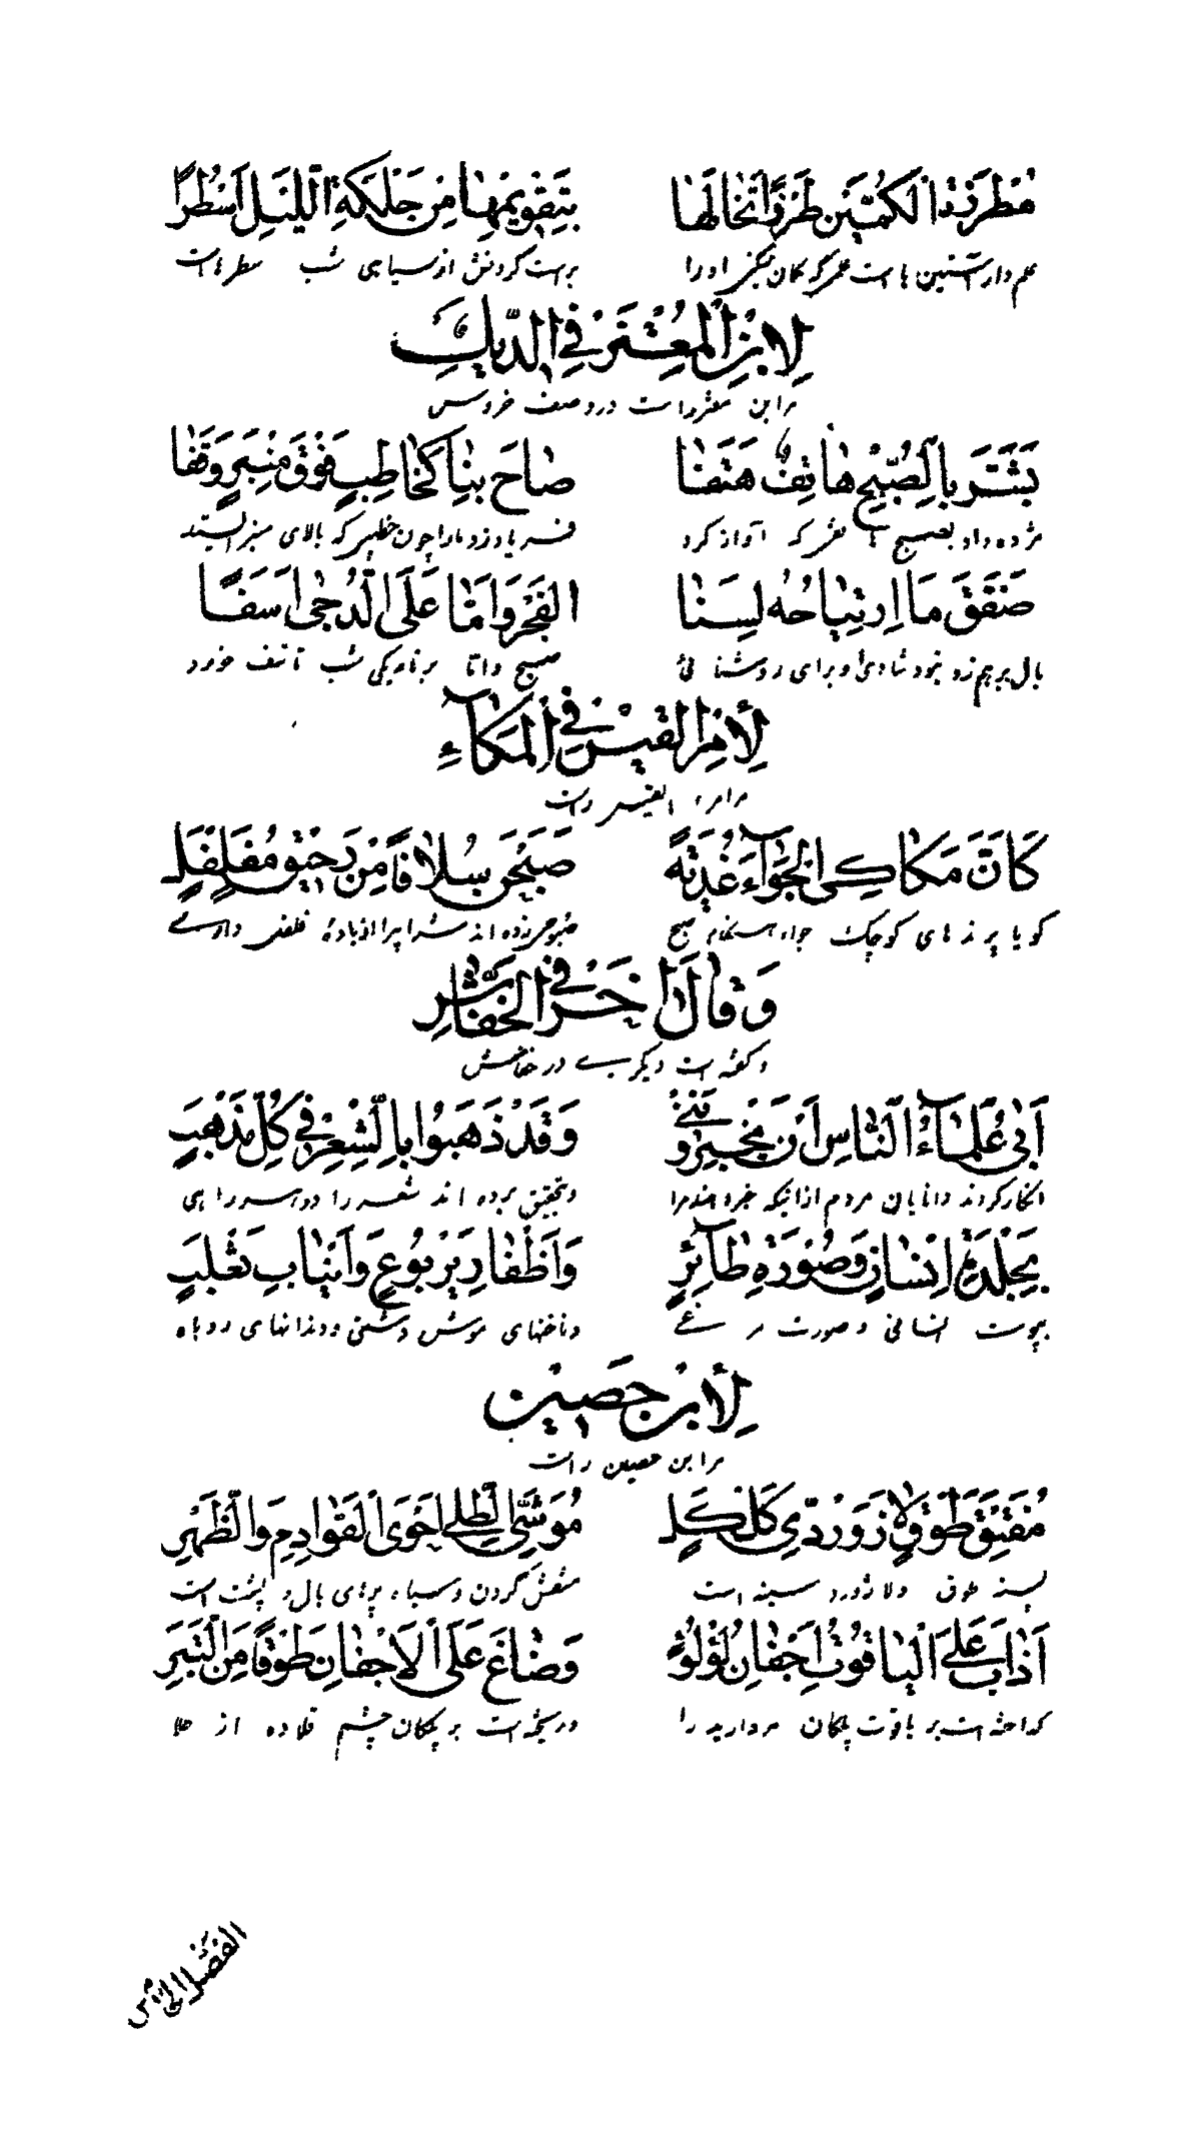 مُطَرَّزَةُ الْكُمَّيْنِ طَرْزًا تَخَالُهَا بِتَقْوِيمِهَا مِنْ حَلْكَةِ اللَّيْلِ أَسْطُرًا
علم دار آستنین ها است علمی که کمان میکنی او را براست کردنش از سیاهی شب سطرهاست
لِابْنِ الْمُعْتَزِّ فِي الدِّيكِ
مر ابن معتز راست در وصف خروس
بَشَّرَ بِالصُّبْحِ هَاتِفٌ هَتَفَا صَاحَ بِنَا كَخَاطِبٍ فَوْقَ مِنْبَرٍ وَقَفَا
مژده داد بصبح که آواز کرد فریاد زد ما را چون خطیبی که بالای منبر ایستد
صَفَّقَ مَا اِرْتِيَاحُهُ لِسَنَا الْفَجْرِ وَامَّا عَلَى الدُّجٰى اَسَفَا
بال بر هم زد نبود شادی او برای روشنائی صبح و اما بر تاریکی شب تاسف خورد
لِأَمْرِءِ الْقَيْسِ فِي الْمُكَّاءِ
مر امرء القیس راست
كَاَنَّ مَكَاكِيَ الْجَوَآءِ غُدَيَّةً صَبَحْنَ سُلَافًا مِنْ رَحِيقٍ مُفَلْفَلِ
گویا پرندهای کوچک جواء هنگام صبح صبوحی زده اند شرابرا از بادۀ فلفلی
وَقَالَ اٰخَرُ فِي الْخُفَّاشِ
و گفته است دیگری در خفاش
اَبٰى عُلَمَآءُ النَّاسِ اَنْ يُخْبِرُونَنِي وَقَدْ ذَهَبُوا بِالشِّعْرِ فِي كُلِّ مَذْهَبِ
انکار کردند دانایان مردم از اینکه خبر دهند مرا و بتحقیق برده اند شعر را در هر راهی
بِجِلْدَةِ اِنْسَانٍ وَصُورَةِ طَآئِرٍ وَاَظْفَارِ يَرْبُوعٍ وَاَنْيَابِ ثَعْلَبِ
بپوست انسانی و صورت مرغی و ناخنهای موش دشتی و دندانهای روباه
لِأَبْنِ حَصِينٍ
مر ابن حصین راست
مُفَتَّقُ طَوْقٍ لَازَوَرْدِيِّ كَلْكَلٍ مُوَشَّى الطُّلٰى اَحْوَى الْقَوَادِمِ وَالظَّهْرِ
طوق و لاژورد سینه است منقش گردن و سیاه پرهای بال و پشت است
اَذَابَ عَلَى الْيَاقُوتِ اَجْفَانَ لُؤْلُؤٍ وَصَاغَ عَلَى الْاَجْفَانِ طَوْقًا مِنَ التِّبْرِ
گداخته است بر یاقوت پلکان مروارید را و ریخته است بر پلکان چشم قلاده از طلا
الفصل الخامس